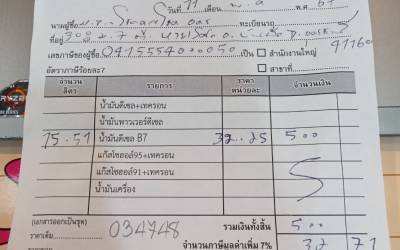 วันที่ 11 เดือน พ.ค พ.ศ 67
นามผู้ซื้อ ทะเบียนรถ
ที่อยู่ 41160
เลขภาษีของผู้ซื้อ 0415554000050 เป็น สำนักงานใหญ่
อัตราภาษีร้อยละ7 สาขาที่
จำนวนลิตร รายการ ราคาหน่วยละ จำนวนเงิน
น้ำมันดีเซล+เทครอน
น้ำมันพาวเวอร์ดีเซล
15.51 น้ำมันดีเซล B7 32.25 500
แก๊สโซฮอล์95+เทครอน
แก๊สโซฮอล์91+เทครอน
น้ำมันเครื่อง
(เอกสารออกเป็นชุด) 034748 รวมเงินทั้งสิ้น 500
ราคาเต็ม จำนวนภาษีมูลค่าเพิ่ม 7% 32 71